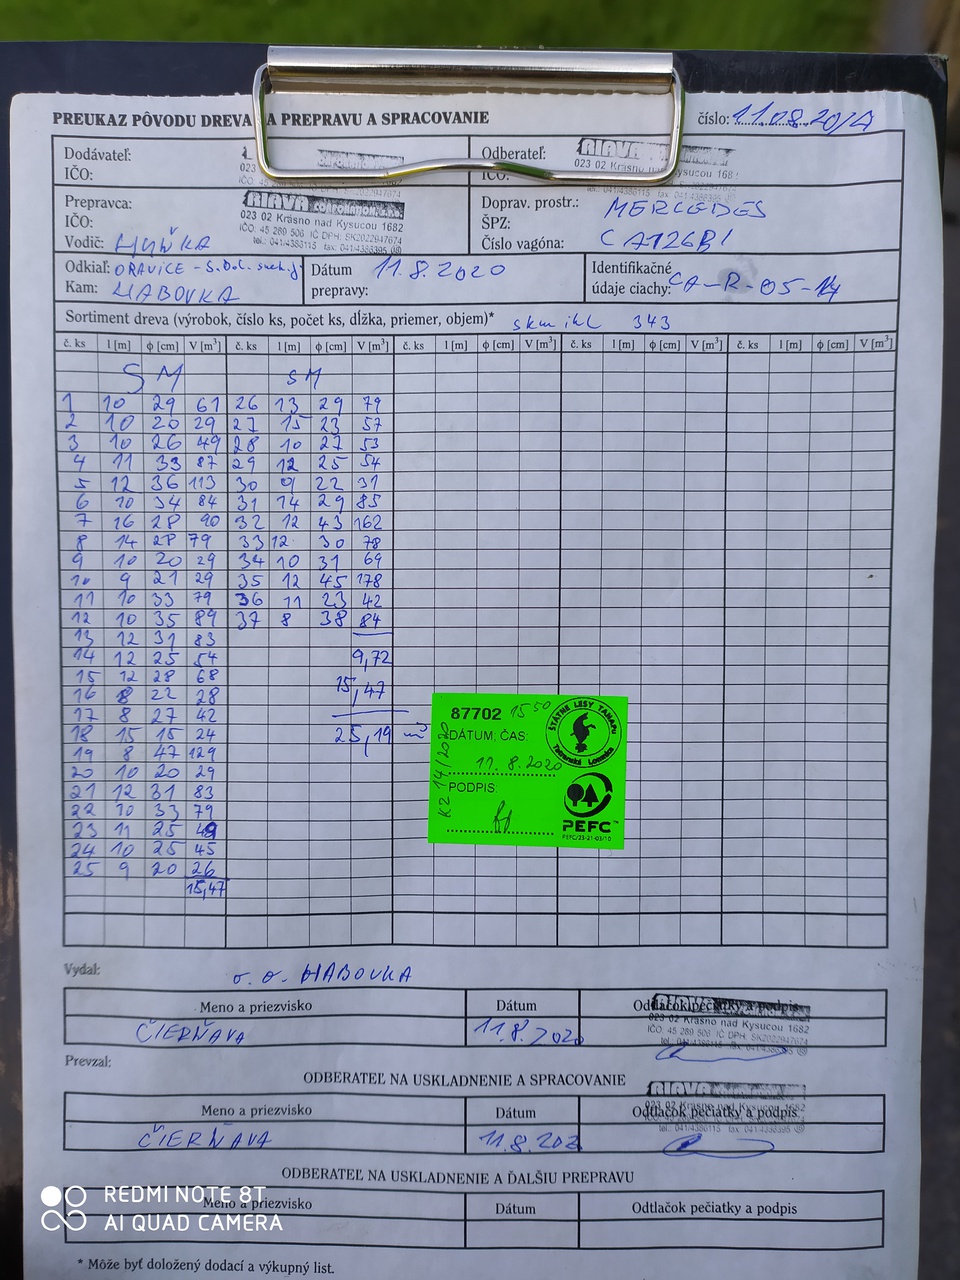 PREUKAZ PÔVODU DREVA A PREPRAVU A SPRACOVANIE
číslo: 11.08.20/A
Dodávateľ:
IČO:
023
Odberateľ: RIAVA
023 02 Krásno nad Kysucou 1682
IČO:
Prepravca: RIAVA
023 02 Krásno nad Kysucou 1682
IČO: IČO: 45 289 506 IČ DPH: SK2022947674
Vodič: HUŇKA tel.: 041/4386115 fax: 041/4385395
Doprav. prostr.: MERCEDES
ŠPZ:
Číslo vagóna: CA126BI
Odkiaľ: ORAVICE - S.Dol. such.j
Kam: HABOVKA
Dátum 11.8.2020
prepravy:
Identifikačné
údaje ciachy: CA-R-05-14
Sortiment dreva (výrobok, číslo ks, počet ks, dĺžka, priemer, objem)* skm ihl 343
č. ks l [m] ϕ [cm] V [m³] č. ks l [m] ϕ [cm] V [m³] č. ks l [m] ϕ [cm] V [m³] č. ks l [m] ϕ [cm] V [m³] č. ks l [m] ϕ [cm] V [m³]
SM SM
1 10 29 61 26 13 29 79
2 10 20 29 27 15 23 57
3 10 26 49 28 10 27 53
4 11 33 87 29 12 25 54
5 12 36 113 30 9 22 31
6 10 34 84 31 14 29 85
7 16 28 90 32 12 43 162
8 14 28 79 33 12 30 78
9 10 20 29 34 10 31 69
10 9 21 29 35 12 45 178
11 10 33 79 36 11 23 42
12 10 35 89 37 8 38 84
13 12 31 83
14 12 25 54 9,72
15 12 28 68
16 8 22 28 15,47
17 8 27 42
18 15 15 24 25,19 m³
19 8 47 129
20 10 20 29
21 12 31 83
22 10 33 79
23 11 25 49
24 10 25 45
25 9 20 26
15,47
87702 15 50
DÁTUM; ČAS:
11.8.2020
PODPIS:
KZ 14/2020
ŠTÁTNE LESY TANAPU
Tatranská Lomnica
PEFC™
PEFC/23-21-03/10
Vydal: o. o. HABOVKA
Meno a priezvisko Dátum Odtlačok pečiatky a podpis
ČIERŇAVA 11.8.2020
RIAVA
023 02 Krásno nad Kysucou 1682
IČO: 45 289 506 IČ DPH: SK2022947674
Prevzal:
ODBERATEĽ NA USKLADNENIE A SPRACOVANIE
RIAVA
023 02 Krásno nad Kysucou 1682
Meno a priezvisko Dátum Odtlačok pečiatky a podpis
ČIERŇAVA 11.8.202
ODBERATEĽ NA USKLADNENIE A ĎALŠIU PREPRAVU
Meno a priezvisko Dátum Odtlačok pečiatky a podpis
* Môže byť doložený dodací a výkupný list.
REDMI NOTE 8T
AI QUAD CAMERA